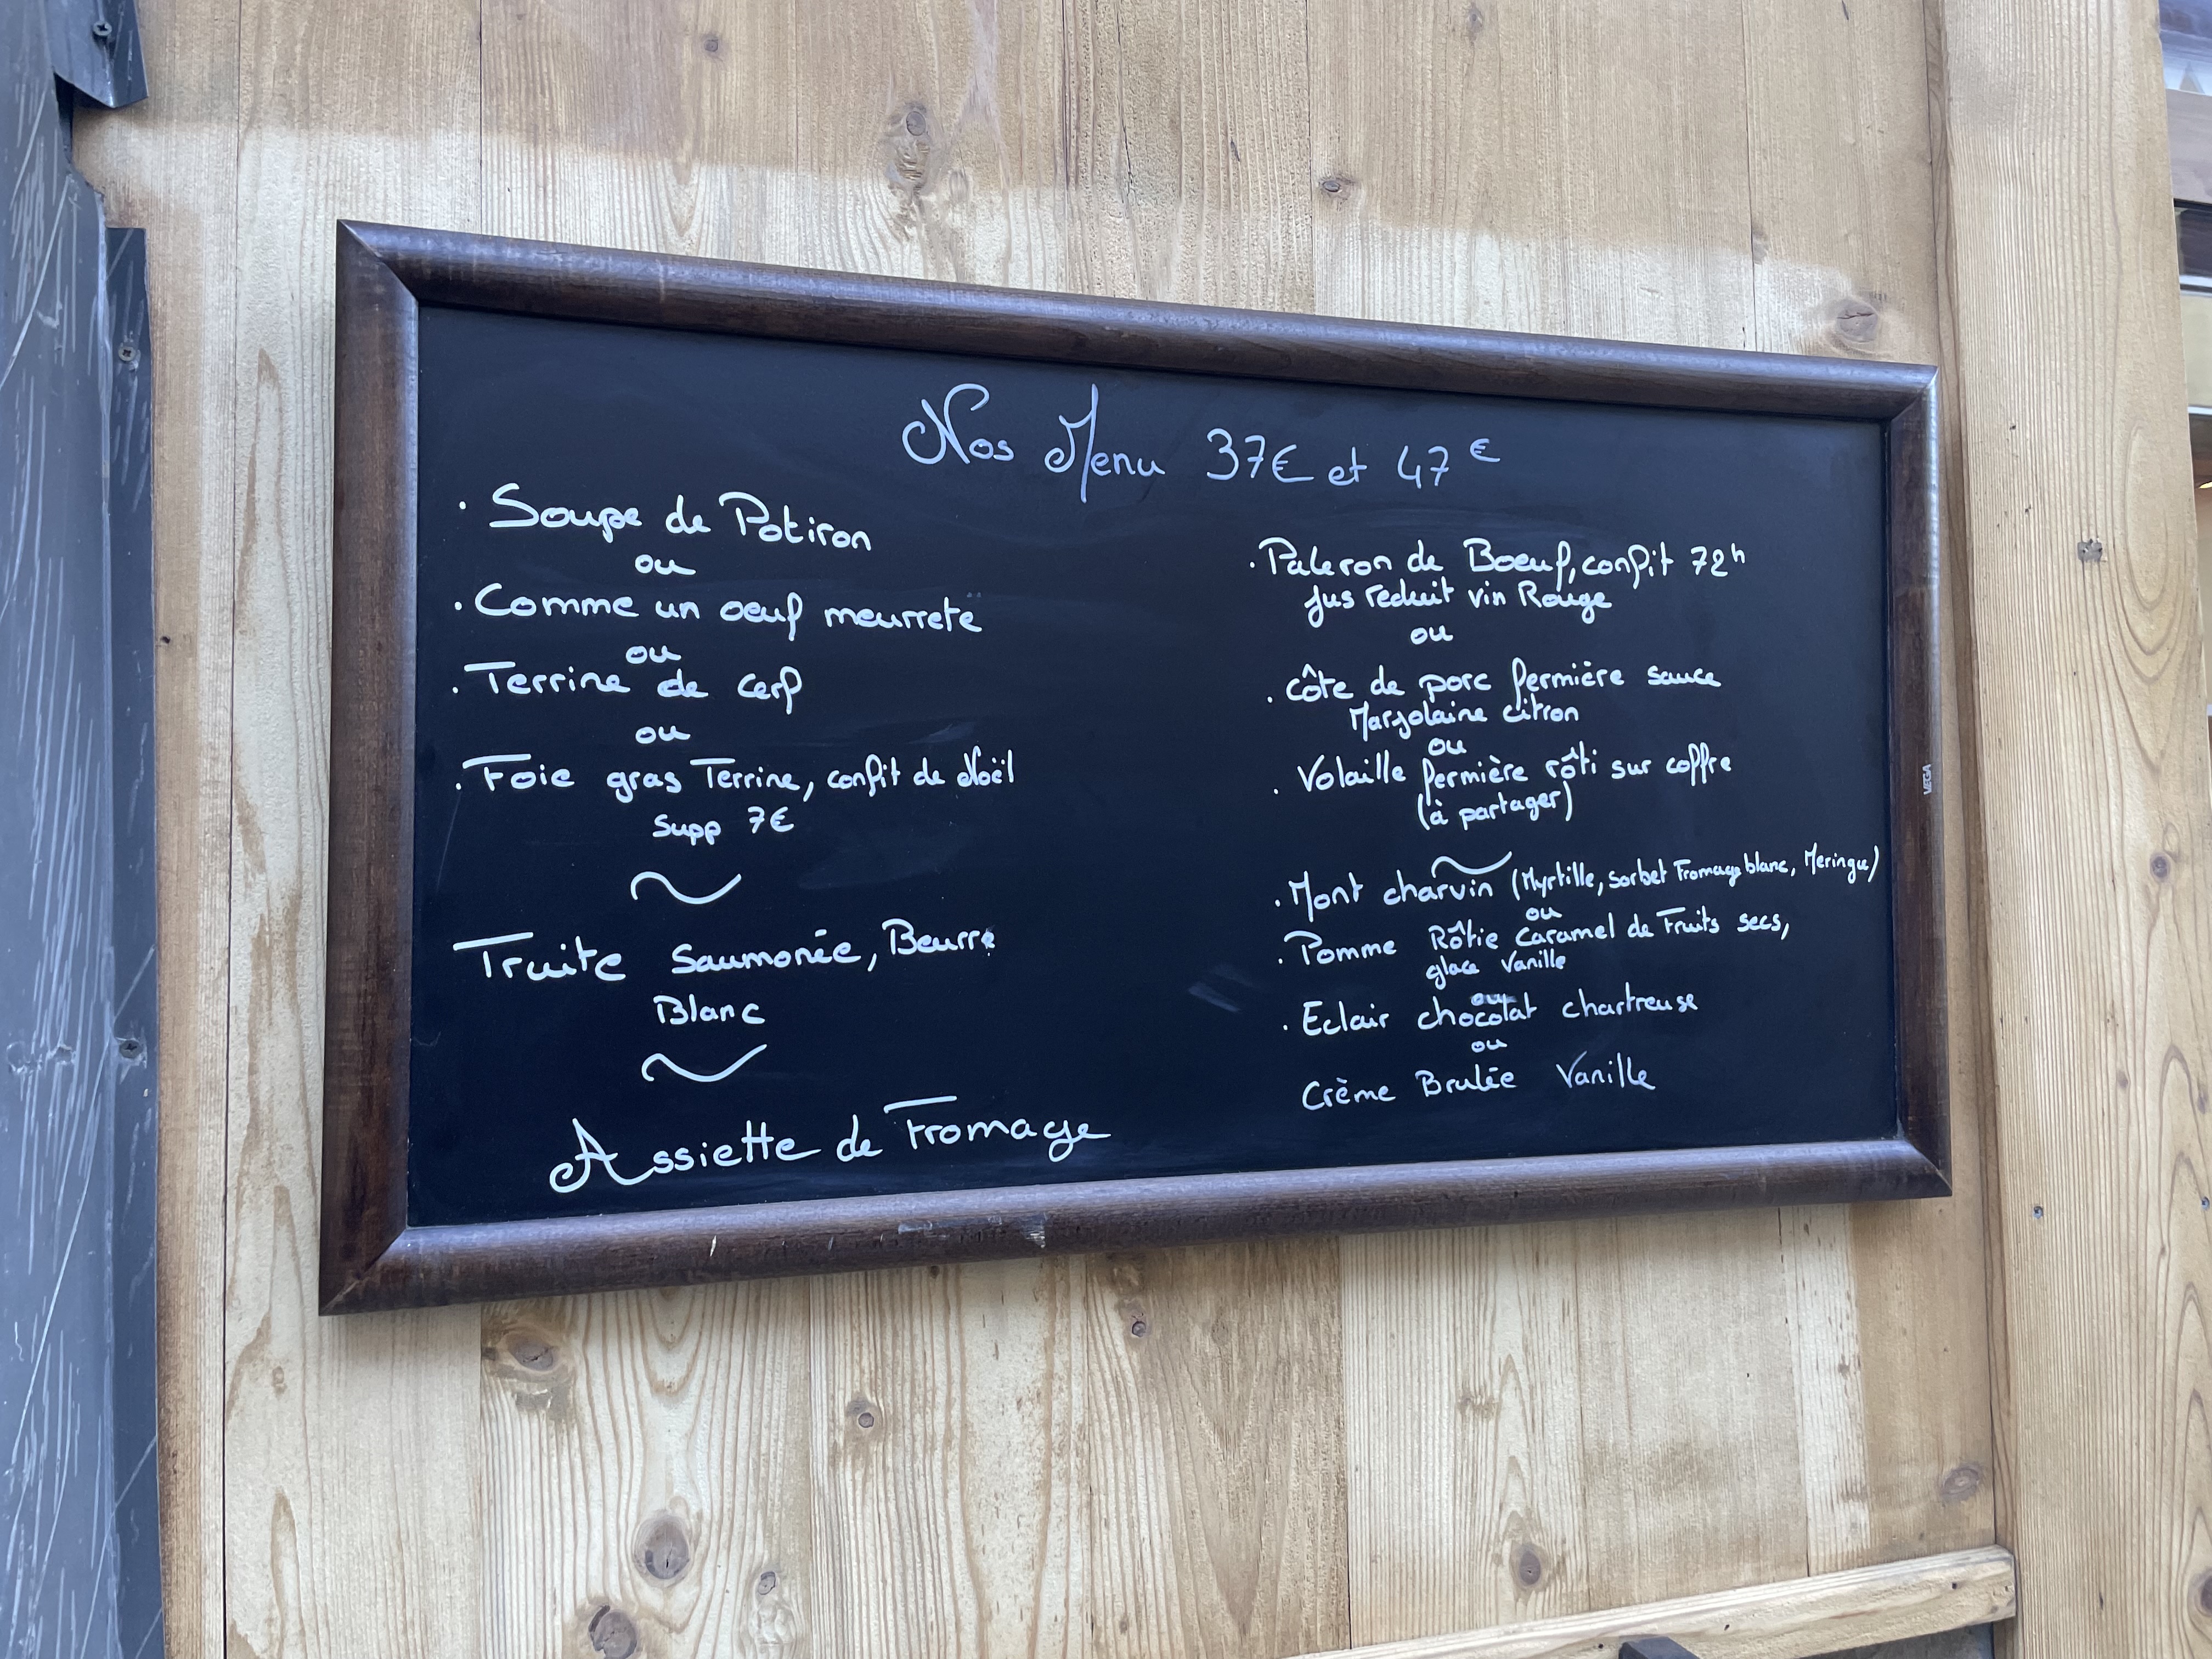 Nos Menu 37€ et 47€
· Soupe de Potiron
ou
· Comme un oeuf meurrete
ou
· Terrine de cerf
ou
· Foie gras Terrine, confit de Noël
Supp 7€
~
Truite Saumonée, Beurre
Blanc
~
Assiette de Fromage
· Paleron de Boeuf, confit 72h
Jus reduit vin Rouge
ou
· côte de porc fermière sauce
Marjolaine citron
ou
· Volaille fermière rôti sur coffre
(à partager)
~
· Mont charvin (Myrtille, sorbet Fromage blanc, Meringue)
ou
· Pomme Rôtie Caramel de Fruits secs,
glace Vanille
ou
· Eclair chocolat chartreuse
ou
Crème Brulée Vanille
VEGA